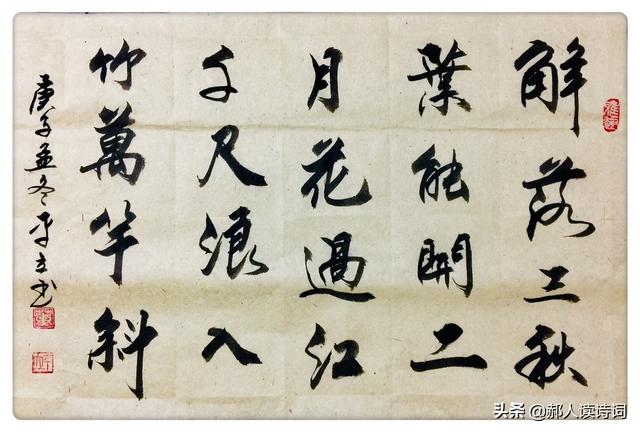 解落三秋
葉能開二
月花過江
千尺浪入
竹萬竿斜
庚子孟冬平立书
头条 @郝人读诗词